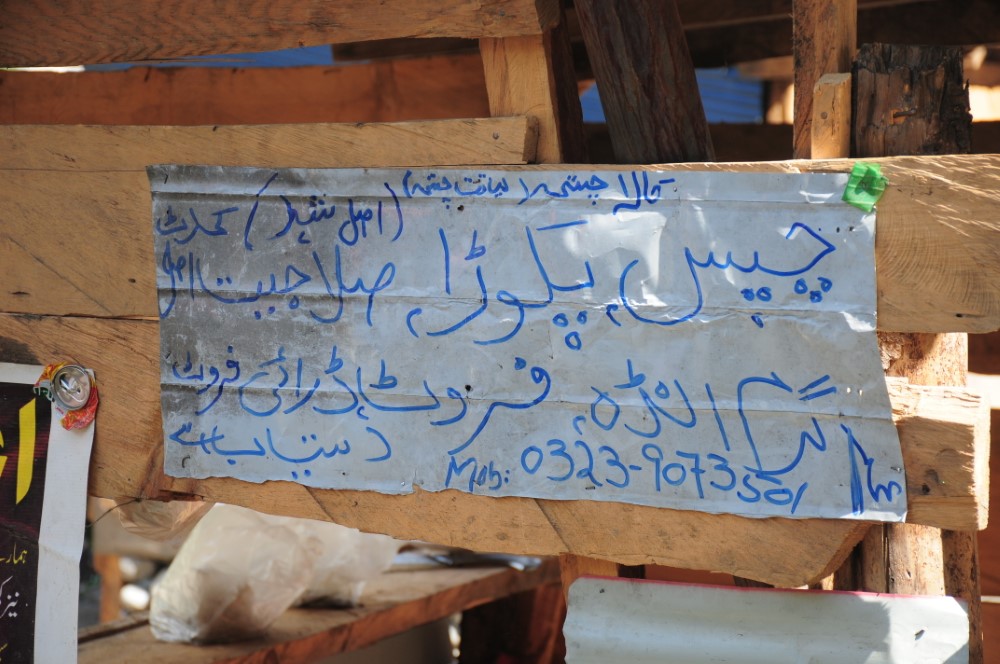 کالا چشمہ (لیاقت چشمہ)
چپس، پکوڑا (اصل شہد) کمراٹ
صلاجیت اصل
گرم انڈہ، فروٹ، ڈرائی فروٹ
دستیاب ہے
Mob: 0323-9073501
ہمارے